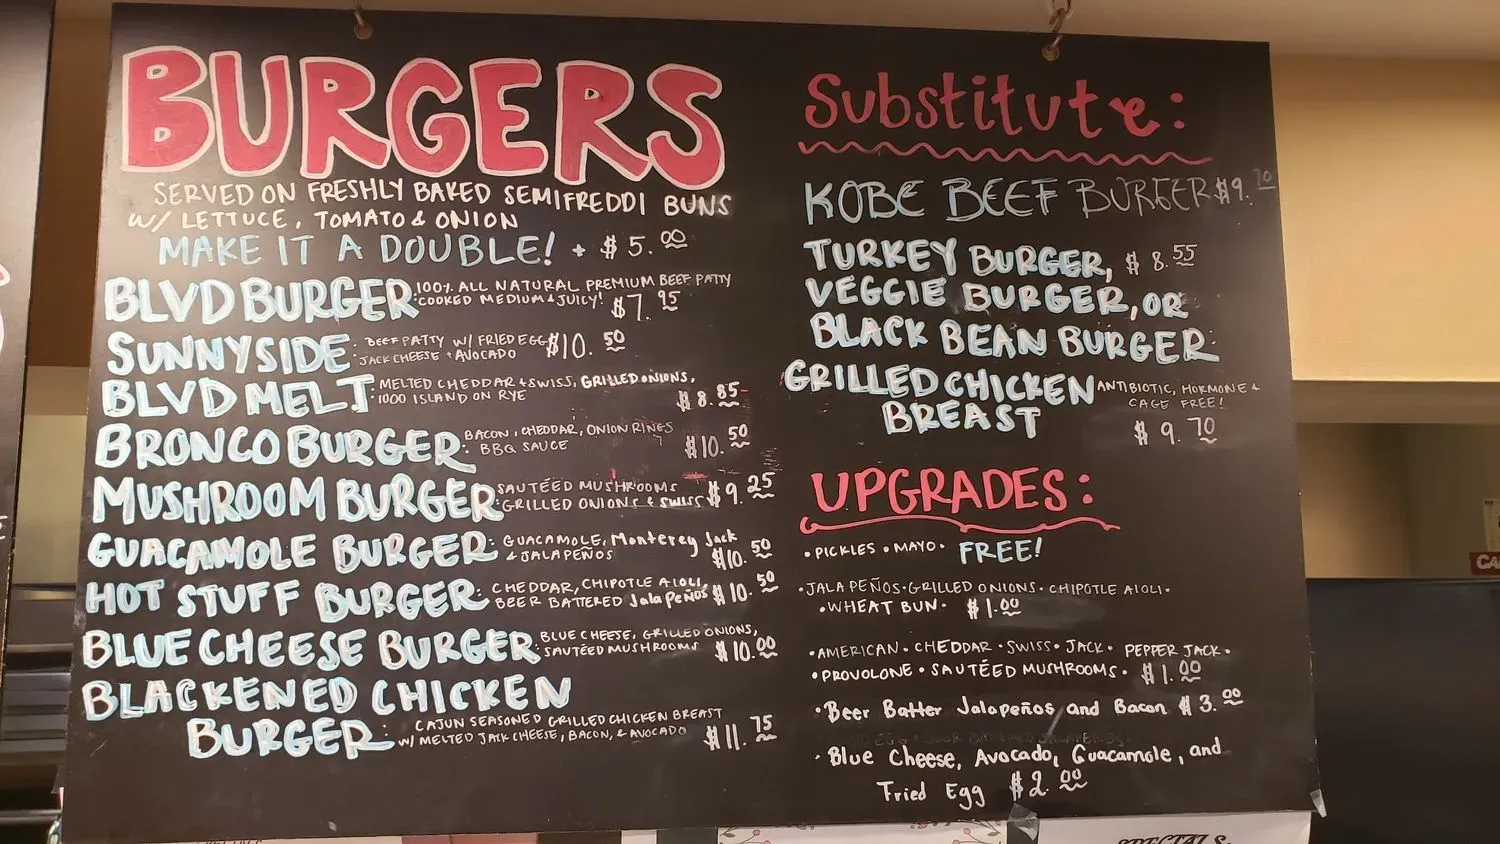 BURGERS
SERVED ON FRESHLY BAKED SEMIFREDDI BUNS
W/ LETTUCE, TOMATO & ONION
MAKE IT A DOUBLE! + $5.00
BLVD BURGER: 100% ALL NATURAL PREMIUM BEEF PATTY
COOKED MEDIUM & JUICY! $7.95
SUNNYSIDE: BEEF PATTY W/ FRIED EGG $10.50
JACK CHEESE + AVOCADO
BLVD MELT: MELTED CHEDDAR + SWISS, GRILLED ONIONS,
1000 ISLAND ON RYE $8.85
BRONCO BURGER: BACON, CHEDDAR, ONION RINGS
BBQ SAUCE $10.50
MUSHROOM BURGER: SAUTÉED MUSHROOMS
GRILLED ONIONS & SWISS $9.25
GUACAMOLE BURGER: GUACAMOLE, Monterey Jack
& JALAPEÑOS $10.50
HOT STUFF BURGER: CHEDDAR, CHIPOTLE AIOLI,
BEER BATTERED JalaPeños $10.50
BLUE CHEESE BURGER: BLUE CHEESE, GRILLED ONIONS,
SAUTÉED MUSHROOMS $10.00
BLACKENED CHICKEN
BURGER: CAJUN SEASONED GRILLED CHICKEN BREAST
W/ MELTED JACK CHEESE, BACON, & AVOCADO $11.75
Substitute:
KOBE BEEF BURGER $9.70
TURKEY BURGER, $8.55
VEGGIE BURGER, OR
BLACK BEAN BURGER:
GRILLED CHICKEN ANTIBIOTIC, HORMONE &
BREAST CAGE FREE!
$9.70
UPGRADES:
• PICKLES • MAYO • FREE!
• JALAPEÑOS • GRILLED ONIONS • CHIPOTLE AIOLI •
• WHEAT BUN • $1.00
• AMERICAN • CHEDDAR • SWISS • JACK • PEPPER JACK •
• PROVOLONE • SAUTÉED MUSHROOMS • $1.00
• Beer Batter Jalapeños and Bacon $3.00
• Blue Cheese, Avocado, Guacamole, and
Fried Egg $2.00
SPECIALS